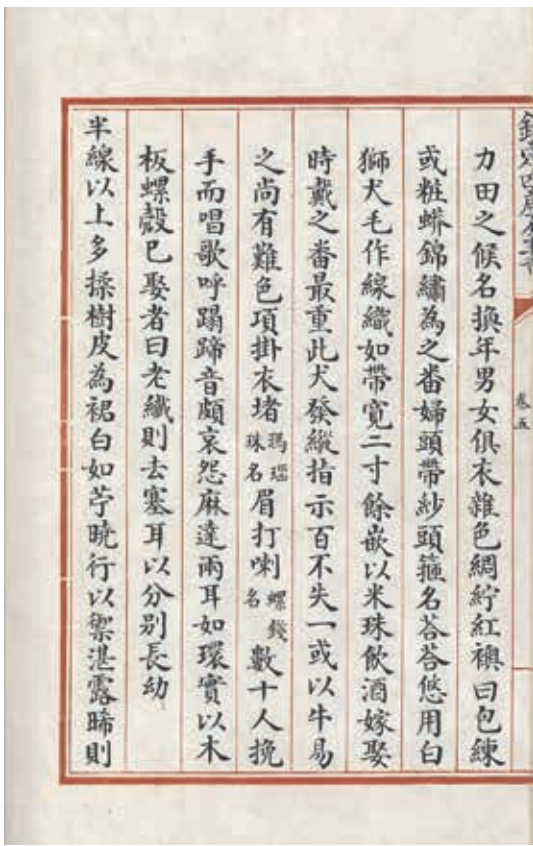 欽定四庫全書
卷五
力田之候名換年男女俱衣雜色綢紵紅襖曰包練
或粧蟒錦繡為之番婦頭帶紗頭箍名荅荅悠用白
獅犬毛作線織如帶寬二寸餘嵌以米珠飲酒嫁娶
時戴之番最重此犬發縱指示百不失一或以牛易
之尚有難色項掛衣堵瑪瑙珠名眉打喇螺錢名數十人挽
手而唱歌呼蹋蹄音頗哀怨麻達兩耳如環實以木
板螺殼已娶者曰老纎則去塞耳以分別長幼
半線以上多揉樹皮為裙白如苧曉行以禦湛露晞則